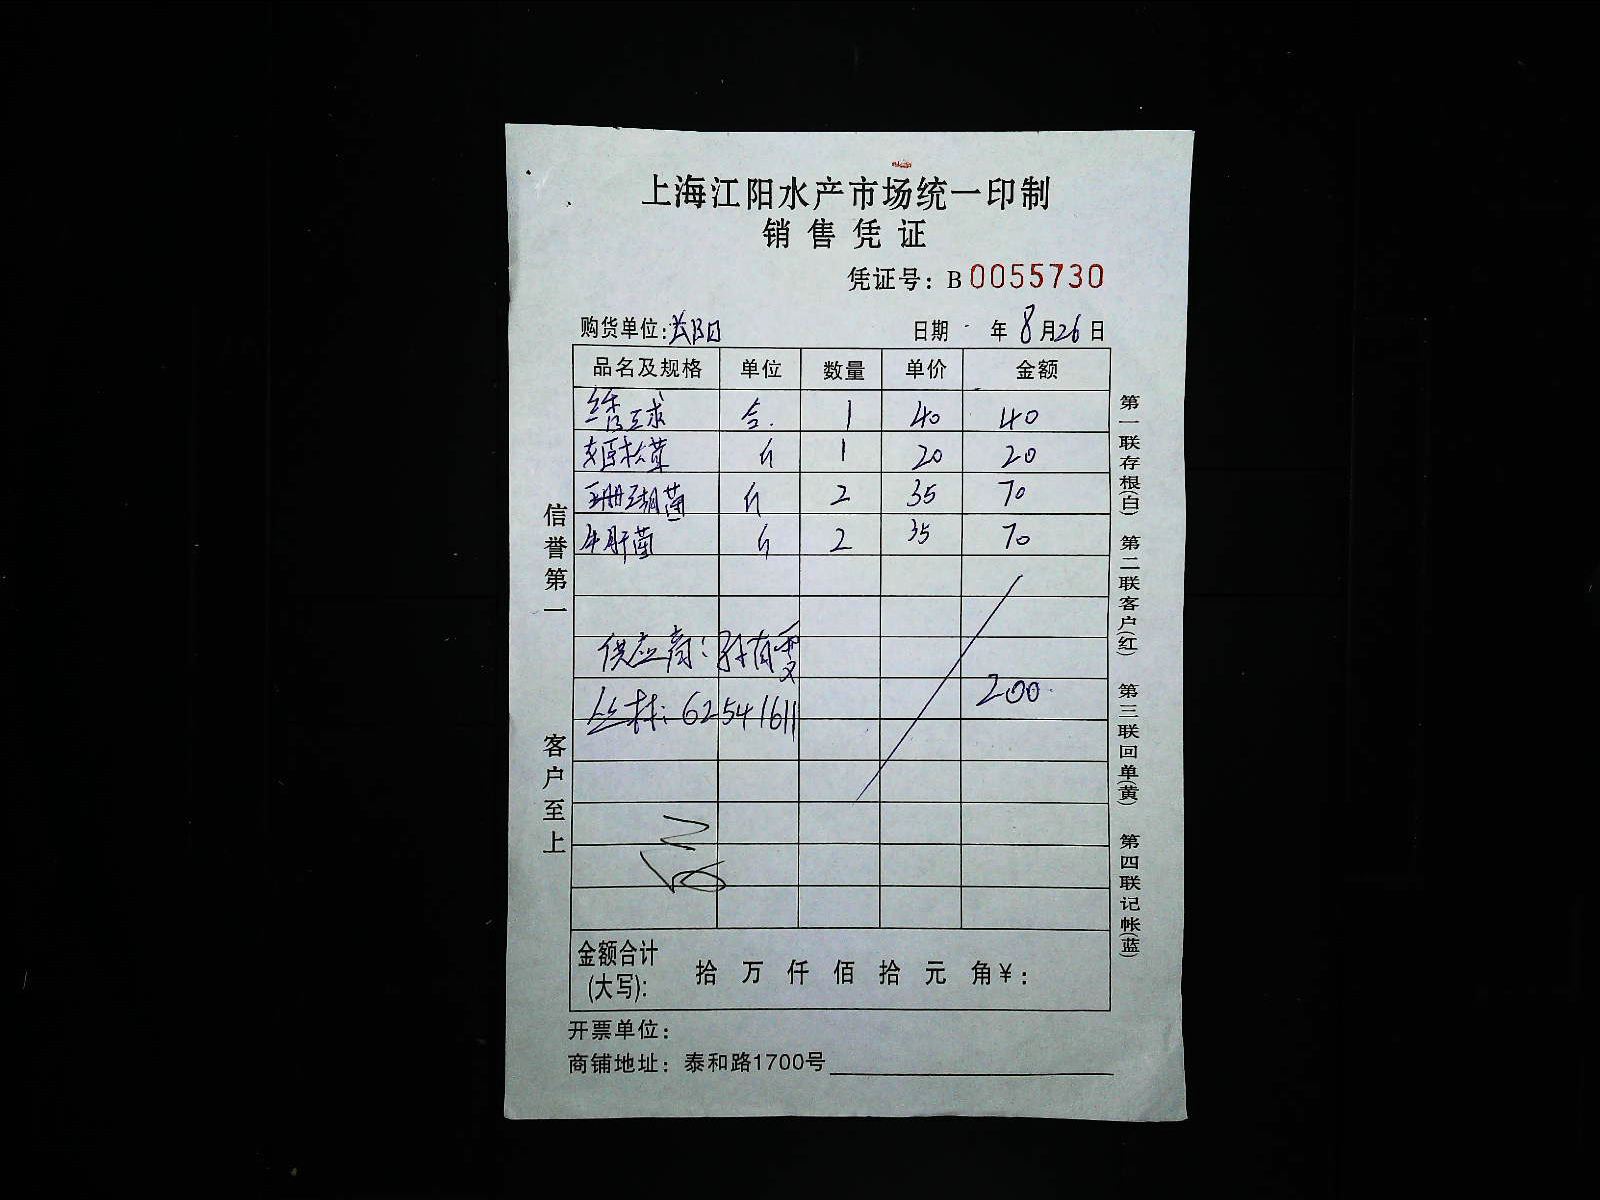 上海江阳水产市场统一印制
销售凭证
凭证号：B 0055730
购货单位: 日期 年 8 月 26 日
品名及规格 单位 数量 单价 金额
绣球 合. 1 40 40
姬松茸 斤 1 20 20
珊瑚菌 斤 2 35 70
牛肝菌 斤 2 35 70
供应商：孙有雯
丛林：62541611
200
金额合计
(大写): 拾 万 仟 佰 拾 元 角 ¥：
开票单位：
商铺地址：泰和路1700号
信誉第一 客户至上
第一联存根(白) 第二联客户(红) 第三联回单(黄) 第四联记帐(蓝)